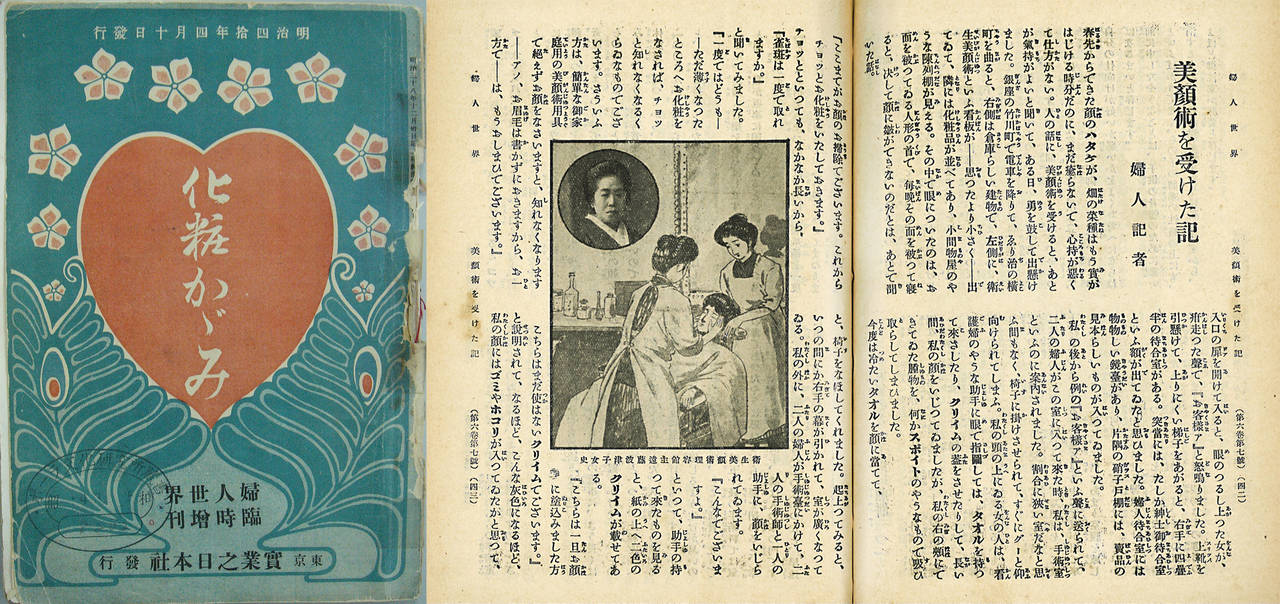 明治四拾年四月十日發行
化粧かゞみ
婦人世界
臨時增刊
東京 實業之日本社 發行
婦人世界
美顏術を受けた記
(第六卷第七號)
(四二)
美顏術を受けた記
婦人記者
春先からできた顏のハタケが、畑の菜種はもう實が
はじける時分だのに、まだ癒らないで、心持が惡く
て仕方がない。人の話に、美顏術を受けると、あと
が氣持がよいと聞いて、ある日、勇を鼓して出懸け
ました。銀座の竹川町で電車を降りて、ゑり治の橫
町を曲ると、右側は倉庫らしい建物で、左側に、衛
生美顏術といふ看板が――思つたより小さく――出
てゐて、隣には化粧品が並べてあり、小間物屋のや
うな陳列棚が見える。その中で眼についたのは、お
面を被つてゐる人形の首で、每晚その面を被つて寢
ると、決して顏に皺ができないのだとは、あとで聞
いた話。
入口の扉を開けて入ると、眼のつるし上つた女が、
疳走つた聲で、『お客樣ァ』と怒鳴りました。上靴を
引懸けて、上りにくい梯子をあがると、右手に四疊
半の待合室がある。突當には、たしか紳士御待合室
といふ額が出てゐたと思ひました。婦人待合室には
物物しい鏡臺があり、片隅の硝子戶棚には、賣品の
見本らしいものが入つてゐました。
私の後から例の『お客樣ァ』といふ聲に送られて、
二人の婦人がこの室に入つて來た時、私は、手術室
といふのに案內されました。割合に狹い室だなと思
ふ間もなく、椅子に掛けさせられて、すぐにグーと仰
向けられてしまふ。私の頭の上にゐる女の人は、看
護婦のやうな助手に眼で指圖しては、タオルを持つ
て來さしたり、クリイムの蓋をさせたりして、長い
間、私の顏をいじつてゐましたが、私の右の頰にで
きてゐた腫物を、何かスポイトのやうなもので吸ひ
取らしてしまひました。
今度は冷たいタオルを顏に當てて、
婦人世界
美顏術を受けた記
(第六卷第七號)
(四三)
『ここまでがお顏のお掃除でございます。これから
チョッとお化粧をいたしておきます。』
チョッとといつても、なかなか長いから、
『雀斑は一度で取れ
ますか。』
と聞いてみました。
『一度ではどうも―
―ただ薄くなつた
ところへお化粧を
なされば、チョッ
と知れなくなるく
らゐなものでござ
います。さういふ
方は、簡單な御家
庭用の美顏術用具
で絕えずお顏をなさいますと、知れなくなります
――アノ、お眉毛は書かずにおきますから、お一
方で――は、もうおしまひでございます。』
衛生美顏術理容館主遠藤波津子女史
と、椅子をなほしてくれました。起上つてみると、
いつの間にか右手の幕が引かれて、室が廣くなつて
ゐる。私の外に、二人の婦人が手術臺にかけて、二
人の手術師と一人の
助手に、顏をいじら
れてゐます。
『こんなでございま
すよ。』
といつて、助手の持
つて來たものを見る
と、紙の上へ二色の
クリイムが載せてあ
る。
『こちらは一旦お顏
に塗込みました方
こちらはまだ使はないクリイムでございます。』
と說明されて、なるほど、こんな灰色になるほど、
私の顏にはゴミやホコリが入つてゐたかと思つて、